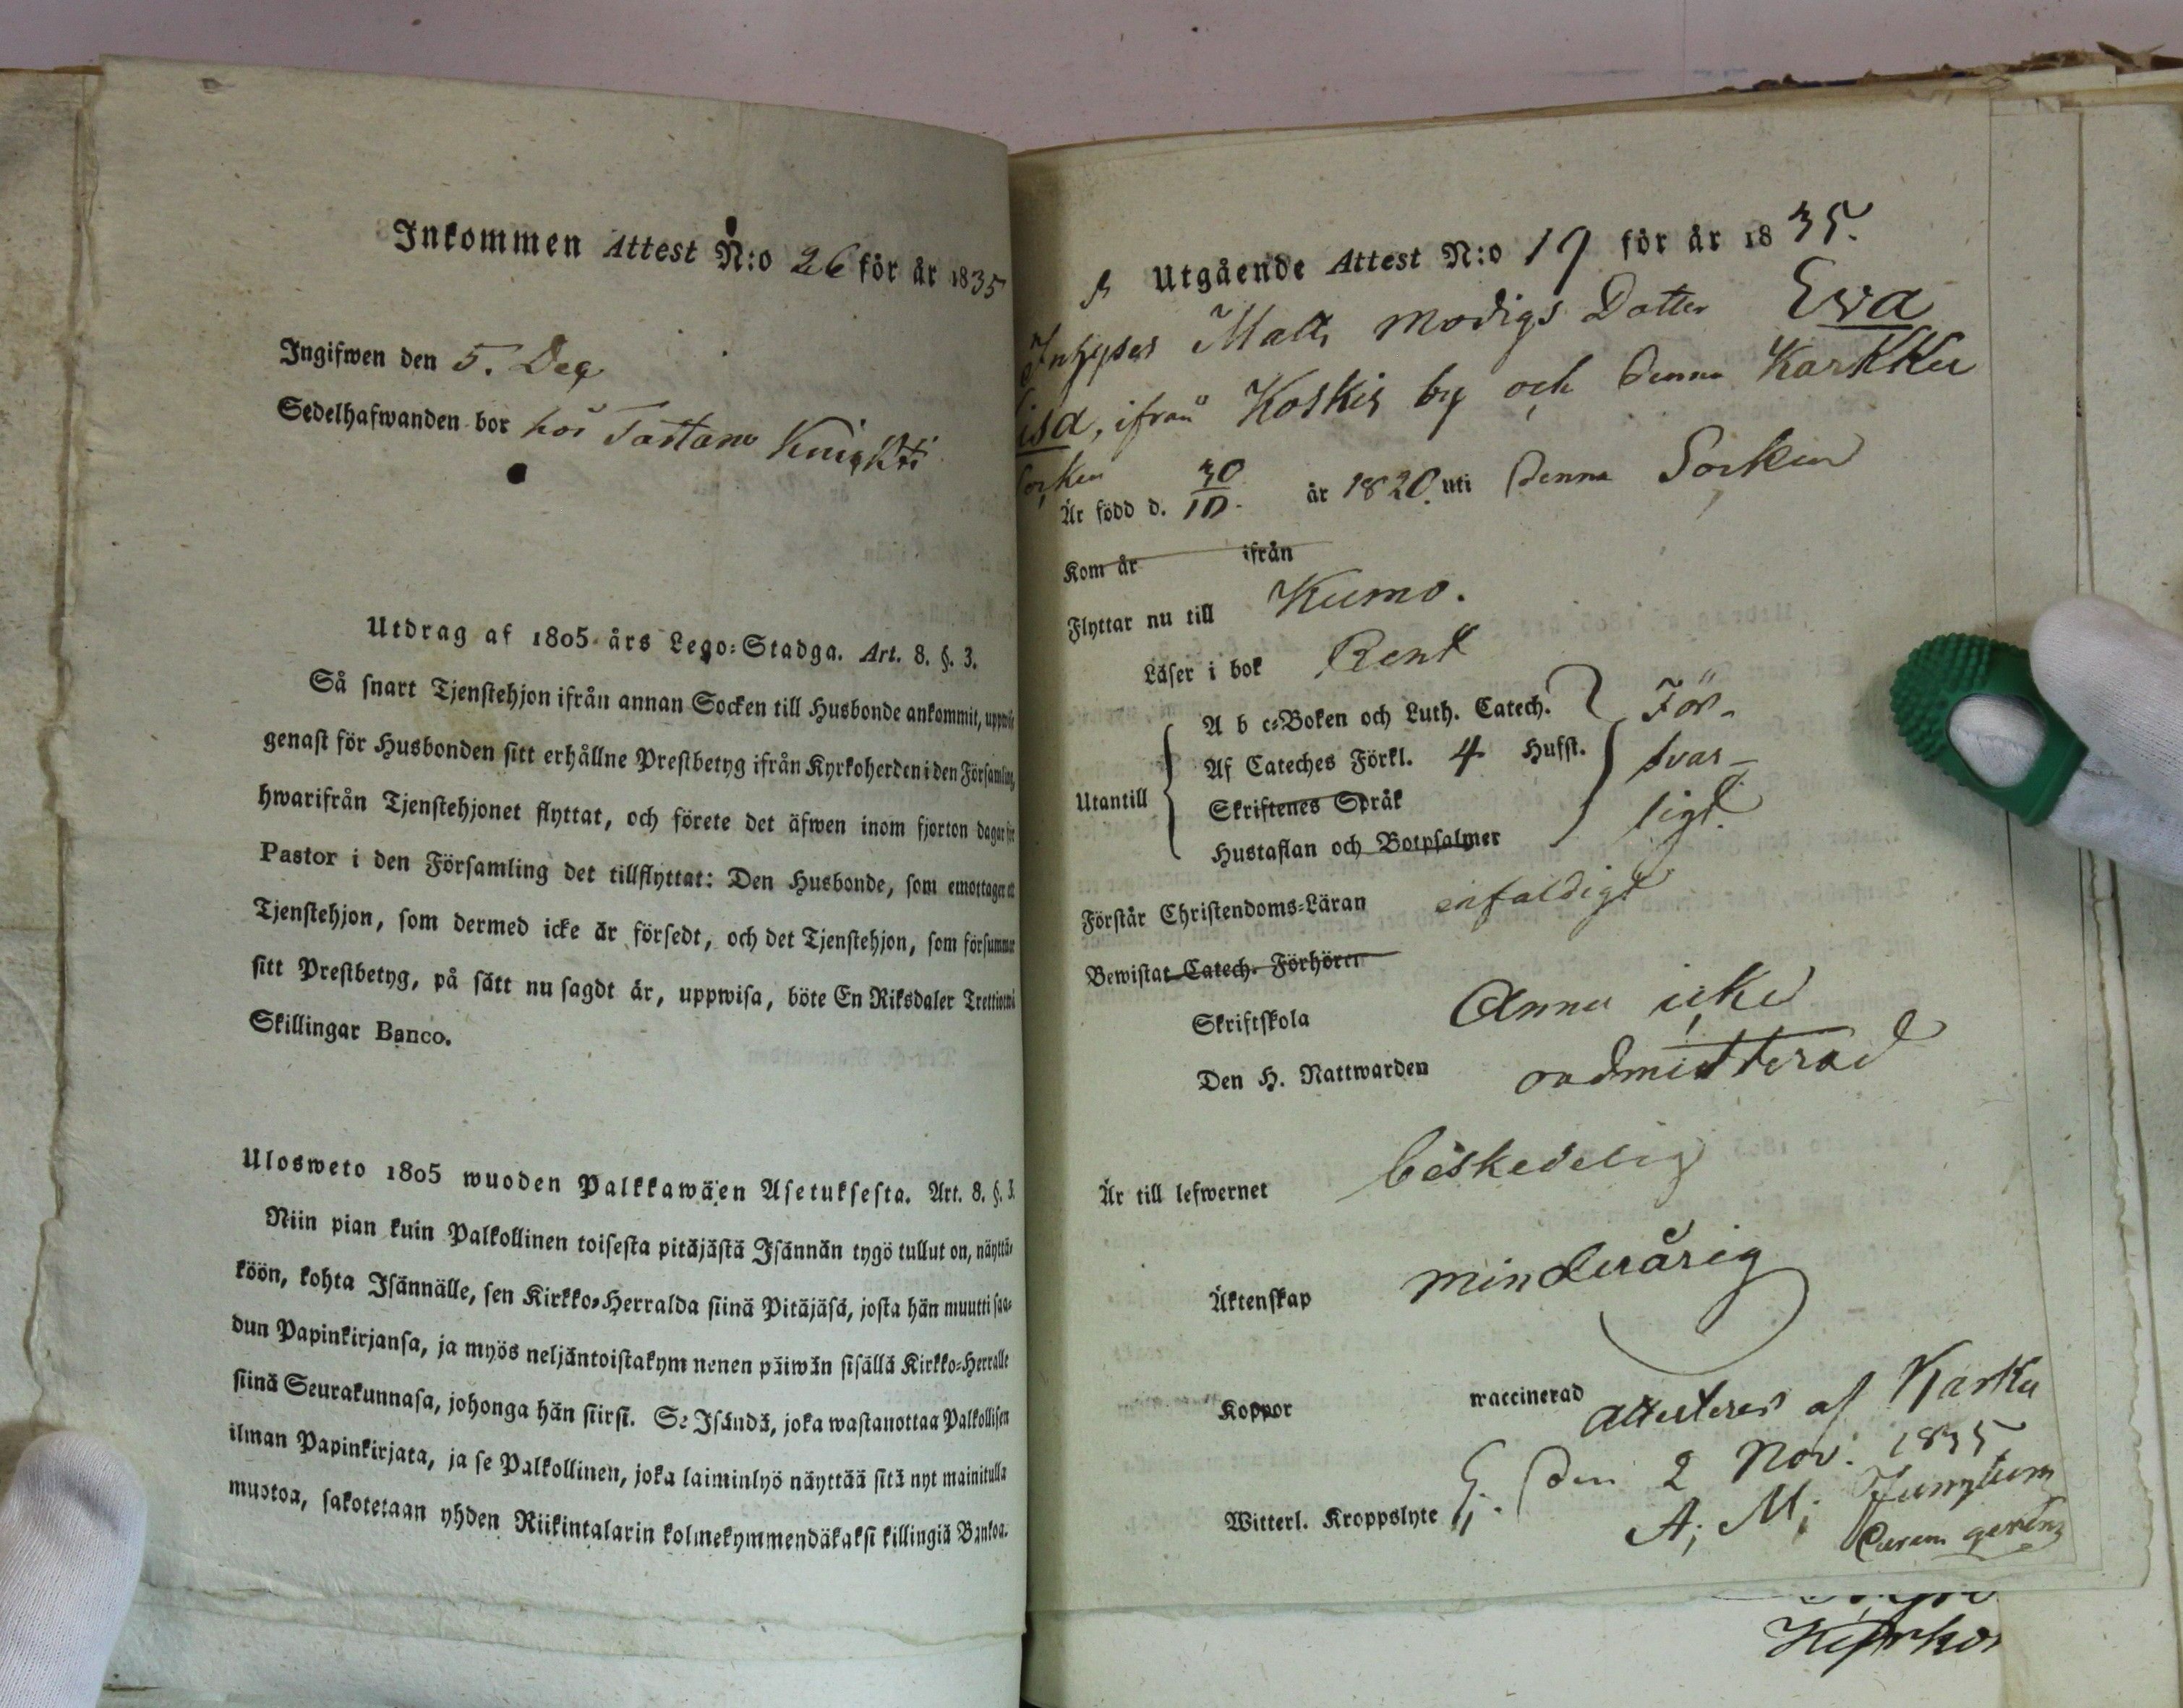 Inkommen Attest N:o 26 för år 1835
Ingifwen den 5. Dec
Sedelhafwanden bor hos Tastamo Knickti
Utdrag af 1805 års Lego-Stadga. Art. 8. §. 3.
Så snart Tjenstehjon ifrån annan Socken till Husbonde ankommit, uppwise
genast för Husbonden sitt erhållne Prestbetyg ifrån Kyrkoherden i den Församling,
hwarifrån Tjenstehjonet flyttat, och förete det äfwen inom fjorton dagar för
Pastor i den Församling det tillflyttat: Den Husbonde, som emottager ett
Tjenstehjon, som dermed icke är försedt, och det Tjenstehjon, som försummar
sitt Prestbetyg, på sätt nu sagdt är, uppwisa, böte En Riksdaler Trettiotwå
Skillingar Banco.
Ulosweto 1805 wuoden Palkkawäen Asetuksesta. Art. 8. §. 3.
Niin pian kuin Palkollinen toisesta pitäjästä Isännän tygö tullut on, näyttä-
köön, kohta Isännälle, sen Kirkko-Herralda siinä Pitäjäsä, josta hän muutti saa-
dun Papinkirjansa, ja myös neljäntoistakym nenen päiwän sisällä Kirkko-Herralle
siinä Seurakunnasa, johonga hän siirsi. Se Isändä, joka wastanottaa Palkollisen
ilman Papinkirjata, ja se Palkollinen, joka laiminlyö näyttää sitä nyt mainitulla
muotoa, sakotetaan yhden Riikintalarin kolmekymmendäkaksi killingiä Bankoa.
Utgående Attest N:o 19 för år 1835.
Inhyses Matts Modigs Dotter Eva
Lisa, ifrån Koskis by och denna Karkku
Socken
Är född d. 30/10. år 1820. uti denna Socken
Kom år ifrån
Flyttar nu till Kumo.
Läser i bok Rent
A b c-Boken och Luth. Catech. För-
Af Cateches Förkl. 4 Hufst. svar-
Utantill
Skriftenes Språk ligt.
Hustaflan och Botpsalmer
Förstår Christendoms-Läran enfaldigt
Bewistat Catech. Förhören
Skriftskola Ännu icke
Den H. Nattwarden admitterad
Är till lefwernet beskedelig
Äktenskap minderårig
Koppor waccinerad Attesteras af Karku
den 2 Nov. 1835
Witterl. Kroppslyte A. M.
Curam gerens
Kyrkoh